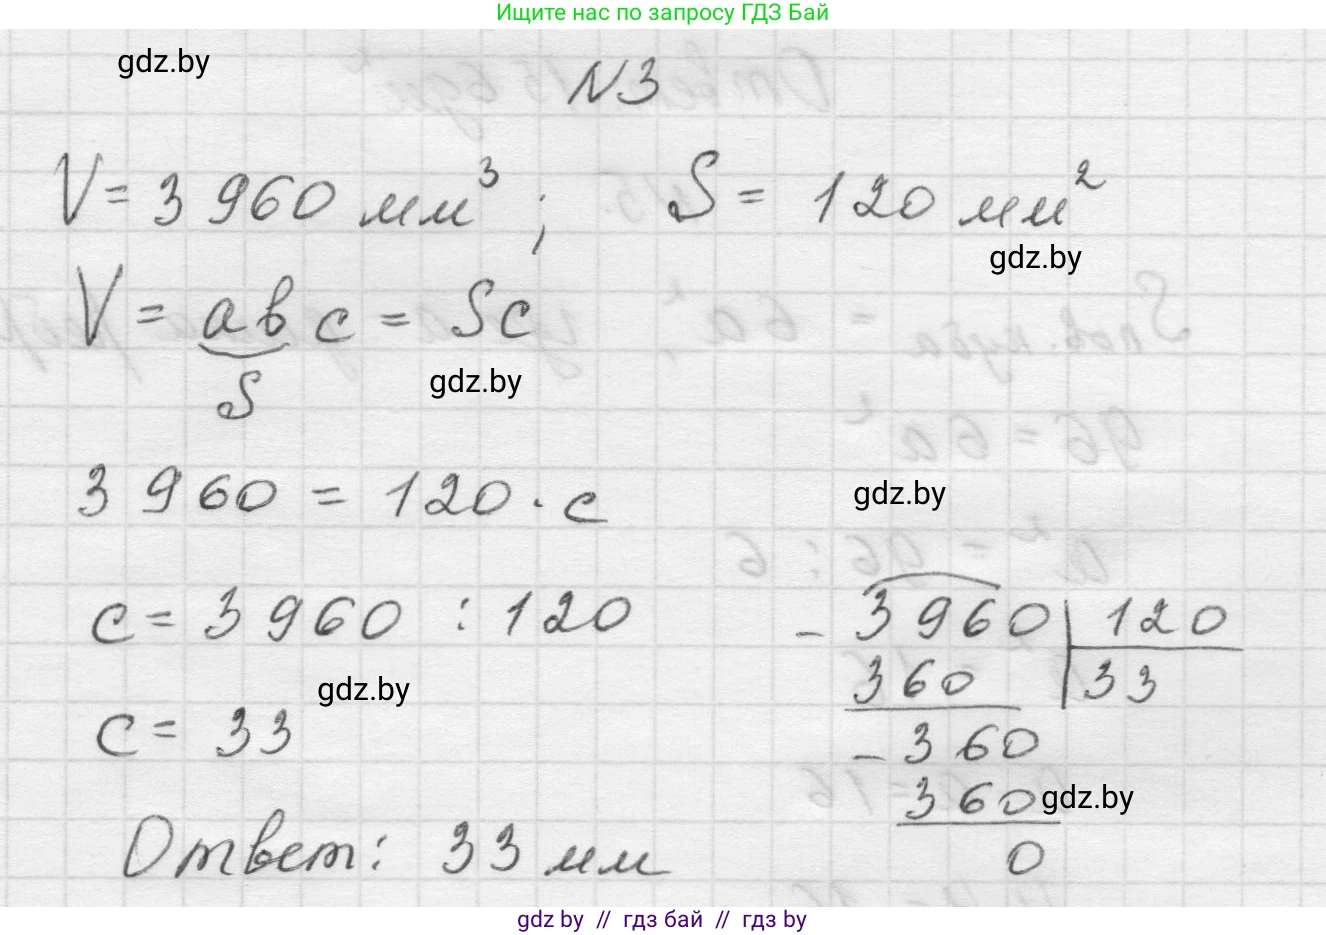 Ищите нас по запросу ГДЗ Бай
gdz.by
N3
V = 3 960 мм³ ; S = 120 мм²
gdz.by
V = abc = Sc
S
gdz.by
3 960 = 120 · c
gdz.by
c = 3 960 : 120
- 3960 | 120
360 | 33
gdz.by
c = 33
- 360
360
gdz.by
0
Ответ: 33 мм
gdz.by // гдз бай // гдз by